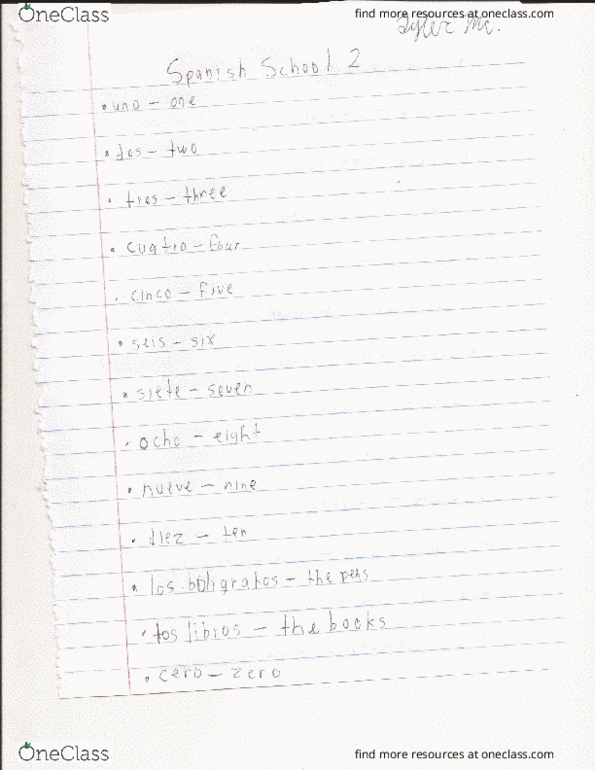 OneClass
find more resources at oneclass.com
Tyler Mc.
Spanish School 2
• uno – one
• dos – two
• tres – three
• cuatro – four
• cinco – five
• seis – six
• siete – seven
• ocho – eight
• nueve – nine
• diez – ten
• los boligrafos – the pens
• los libros – the books
• cero – zero
OneClass
find more resources at oneclass.com